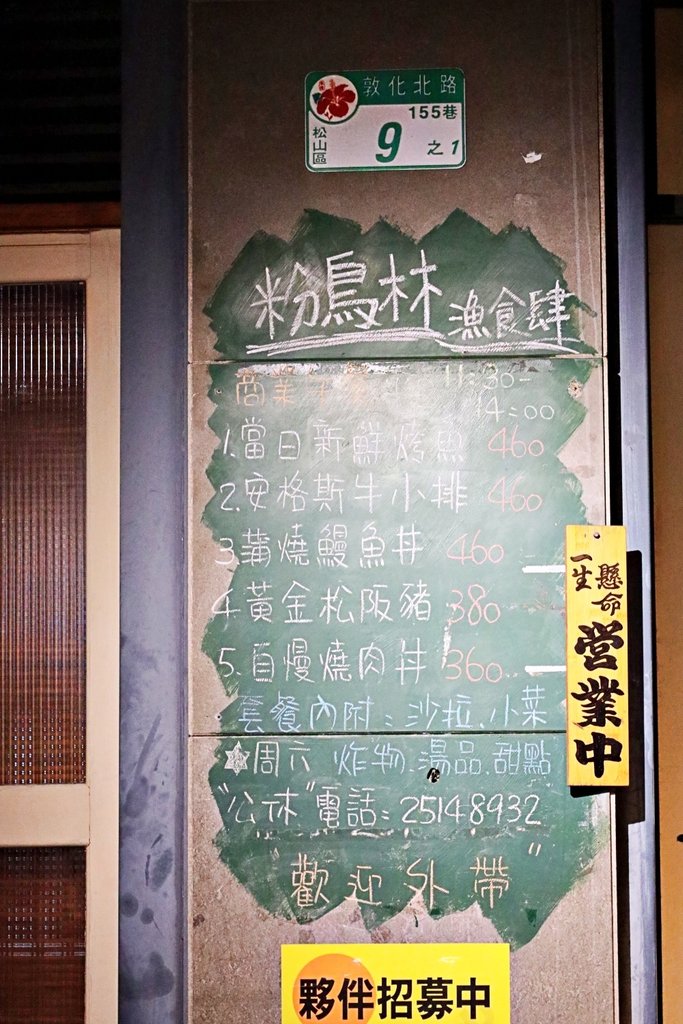 敦化北路
155巷
松山區
9之1
粉鳥林 漁食肆
商業午餐 11:30-
14:00
1.當日新鮮烤魚 460
2.安格斯牛小排 460
3.蒲燒鰻魚丼 460
4.黃金松阪豬 380
5.自慢燒肉丼 360
套餐內附:沙拉.小菜
周六 炸物.湯品.甜點
"公休" 電話:25148932
"歡迎外帶"
一生懸命
営業中
夥伴招募中